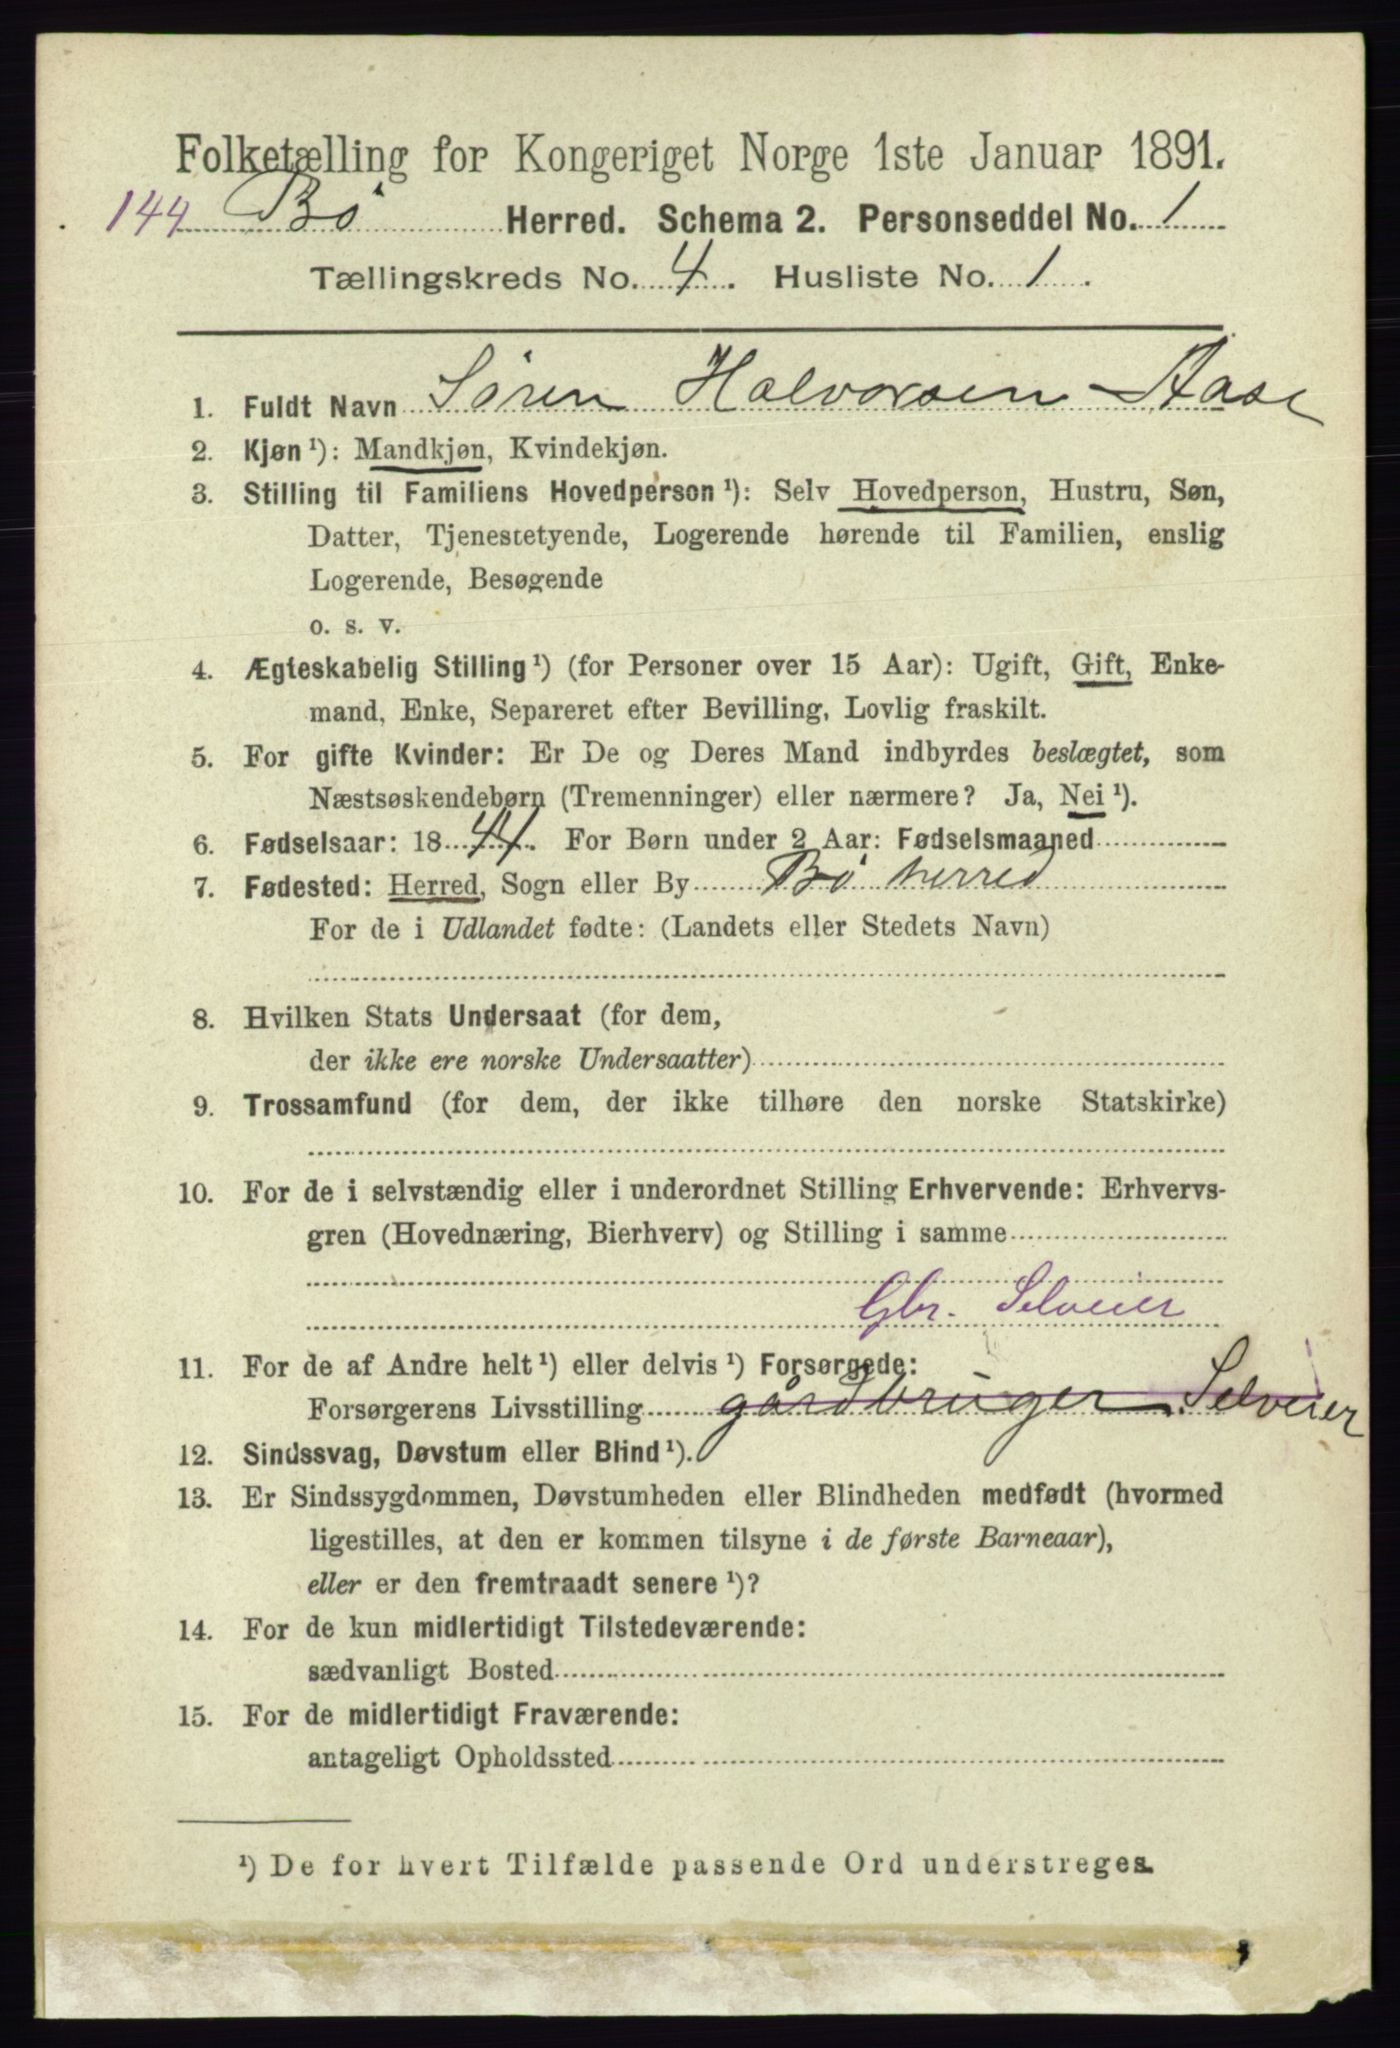 Folketælling for Kongeriget Norge 1ste Januar 1891.
144 Bø Herred. Schema 2. Personseddel No. 1
Tællingskreds No. 4. Husliste No. 1.
1. Fuldt Navn Søren Halvorsen Aase
2. Kjøn¹): Mandkjøn, Kvindekjøn.
3. Stilling til Familiens Hovedperson¹): Selv Hovedperson, Hustru, Søn,
Datter, Tjenestetyende, Logerende hørende til Familien, enslig
Logerende, Besøgende
o. s. v.
4. Ægteskabelig Stilling¹) (for Personer over 15 Aar): Ugift, Gift, Enke-
mand, Enke, Separeret efter Bevilling, Lovlig fraskilt.
5. For gifte Kvinder: Er De og Deres Mand indbyrdes beslægtet, som
Næstsøskendebørn (Tremenninger) eller nærmere? Ja, Nei¹).
6. Fødselsaar: 1844. For Børn under 2 Aar: Fødselsmaaned
7. Fødested: Herred, Sogn eller By Bø herred
For de i Udlandet fødte: (Landets eller Stedets Navn)
8. Hvilken Stats Undersaat (for dem,
der ikke ere norske Undersaatter)
9. Trossamfund (for dem, der ikke tilhøre den norske Statskirke)
10. For de i selvstændig eller i underordnet Stilling Erhvervende: Erhvervs-
gren (Hovednæring, Bierhverv) og Stilling i samme
Gbr. Selveier
11. For de af Andre helt¹) eller delvis¹) Forsørgede:
Forsørgerens Livsstilling gårdbruger. Selveier
12. Sindssvag, Døvstum eller Blind¹).
13. Er Sindssygdommen, Døvstumheden eller Blindheden medfødt (hvormed
ligestilles, at den er kommen tilsyne i de første Barneaar),
eller er den fremtraadt senere¹)?
14. For de kun midlertidigt Tilstedeværende:
sædvanligt Bosted
15. For de midlertidigt Fraværende:
antageligt Opholdssted
¹) De for hvert Tilfælde passende Ord understreges.